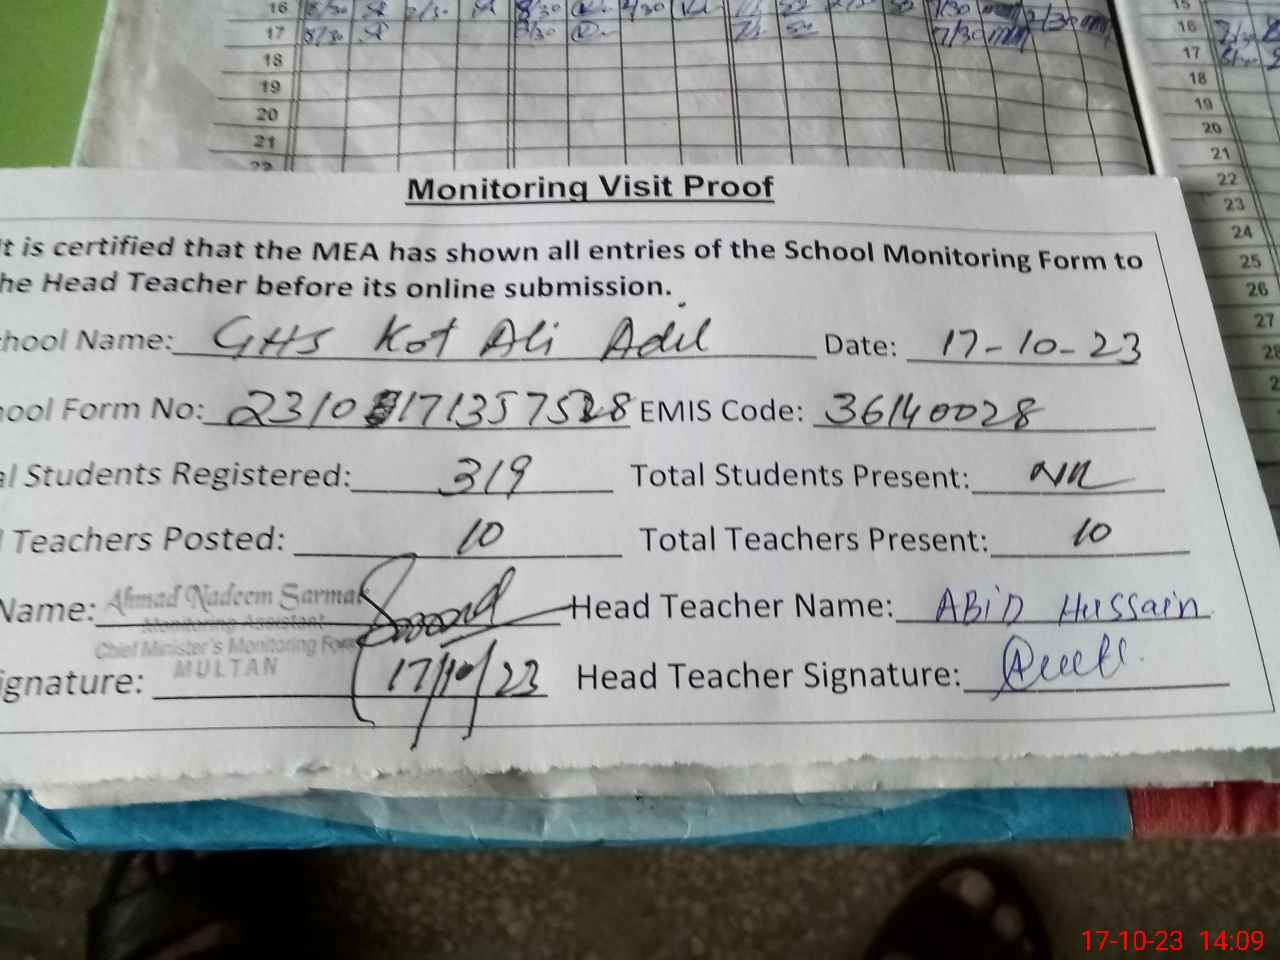 16
17
18
19
20
21
22
15
16
17
18
19
20
21
22
23
24
25
26
27
28
Monitoring Visit Proof
It is certified that the MEA has shown all entries of the School Monitoring Form to
he Head Teacher before its online submission.
chool Name: GHS Kot Ali Adil Date: 17-10-23
ool Form No: 2310 171357528 EMIS Code: 36140028
al Students Registered: 319 Total Students Present: NR
Teachers Posted: 10 Total Teachers Present: 10
Name: Ahmad Nadeem Sarmad Head Teacher Name: ABiD Hussain
Monitoring Assistant
Chief Minister's Monitoring Force
MULTAN
ignature: 17/10/23 Head Teacher Signature:
17-10-23 14:09